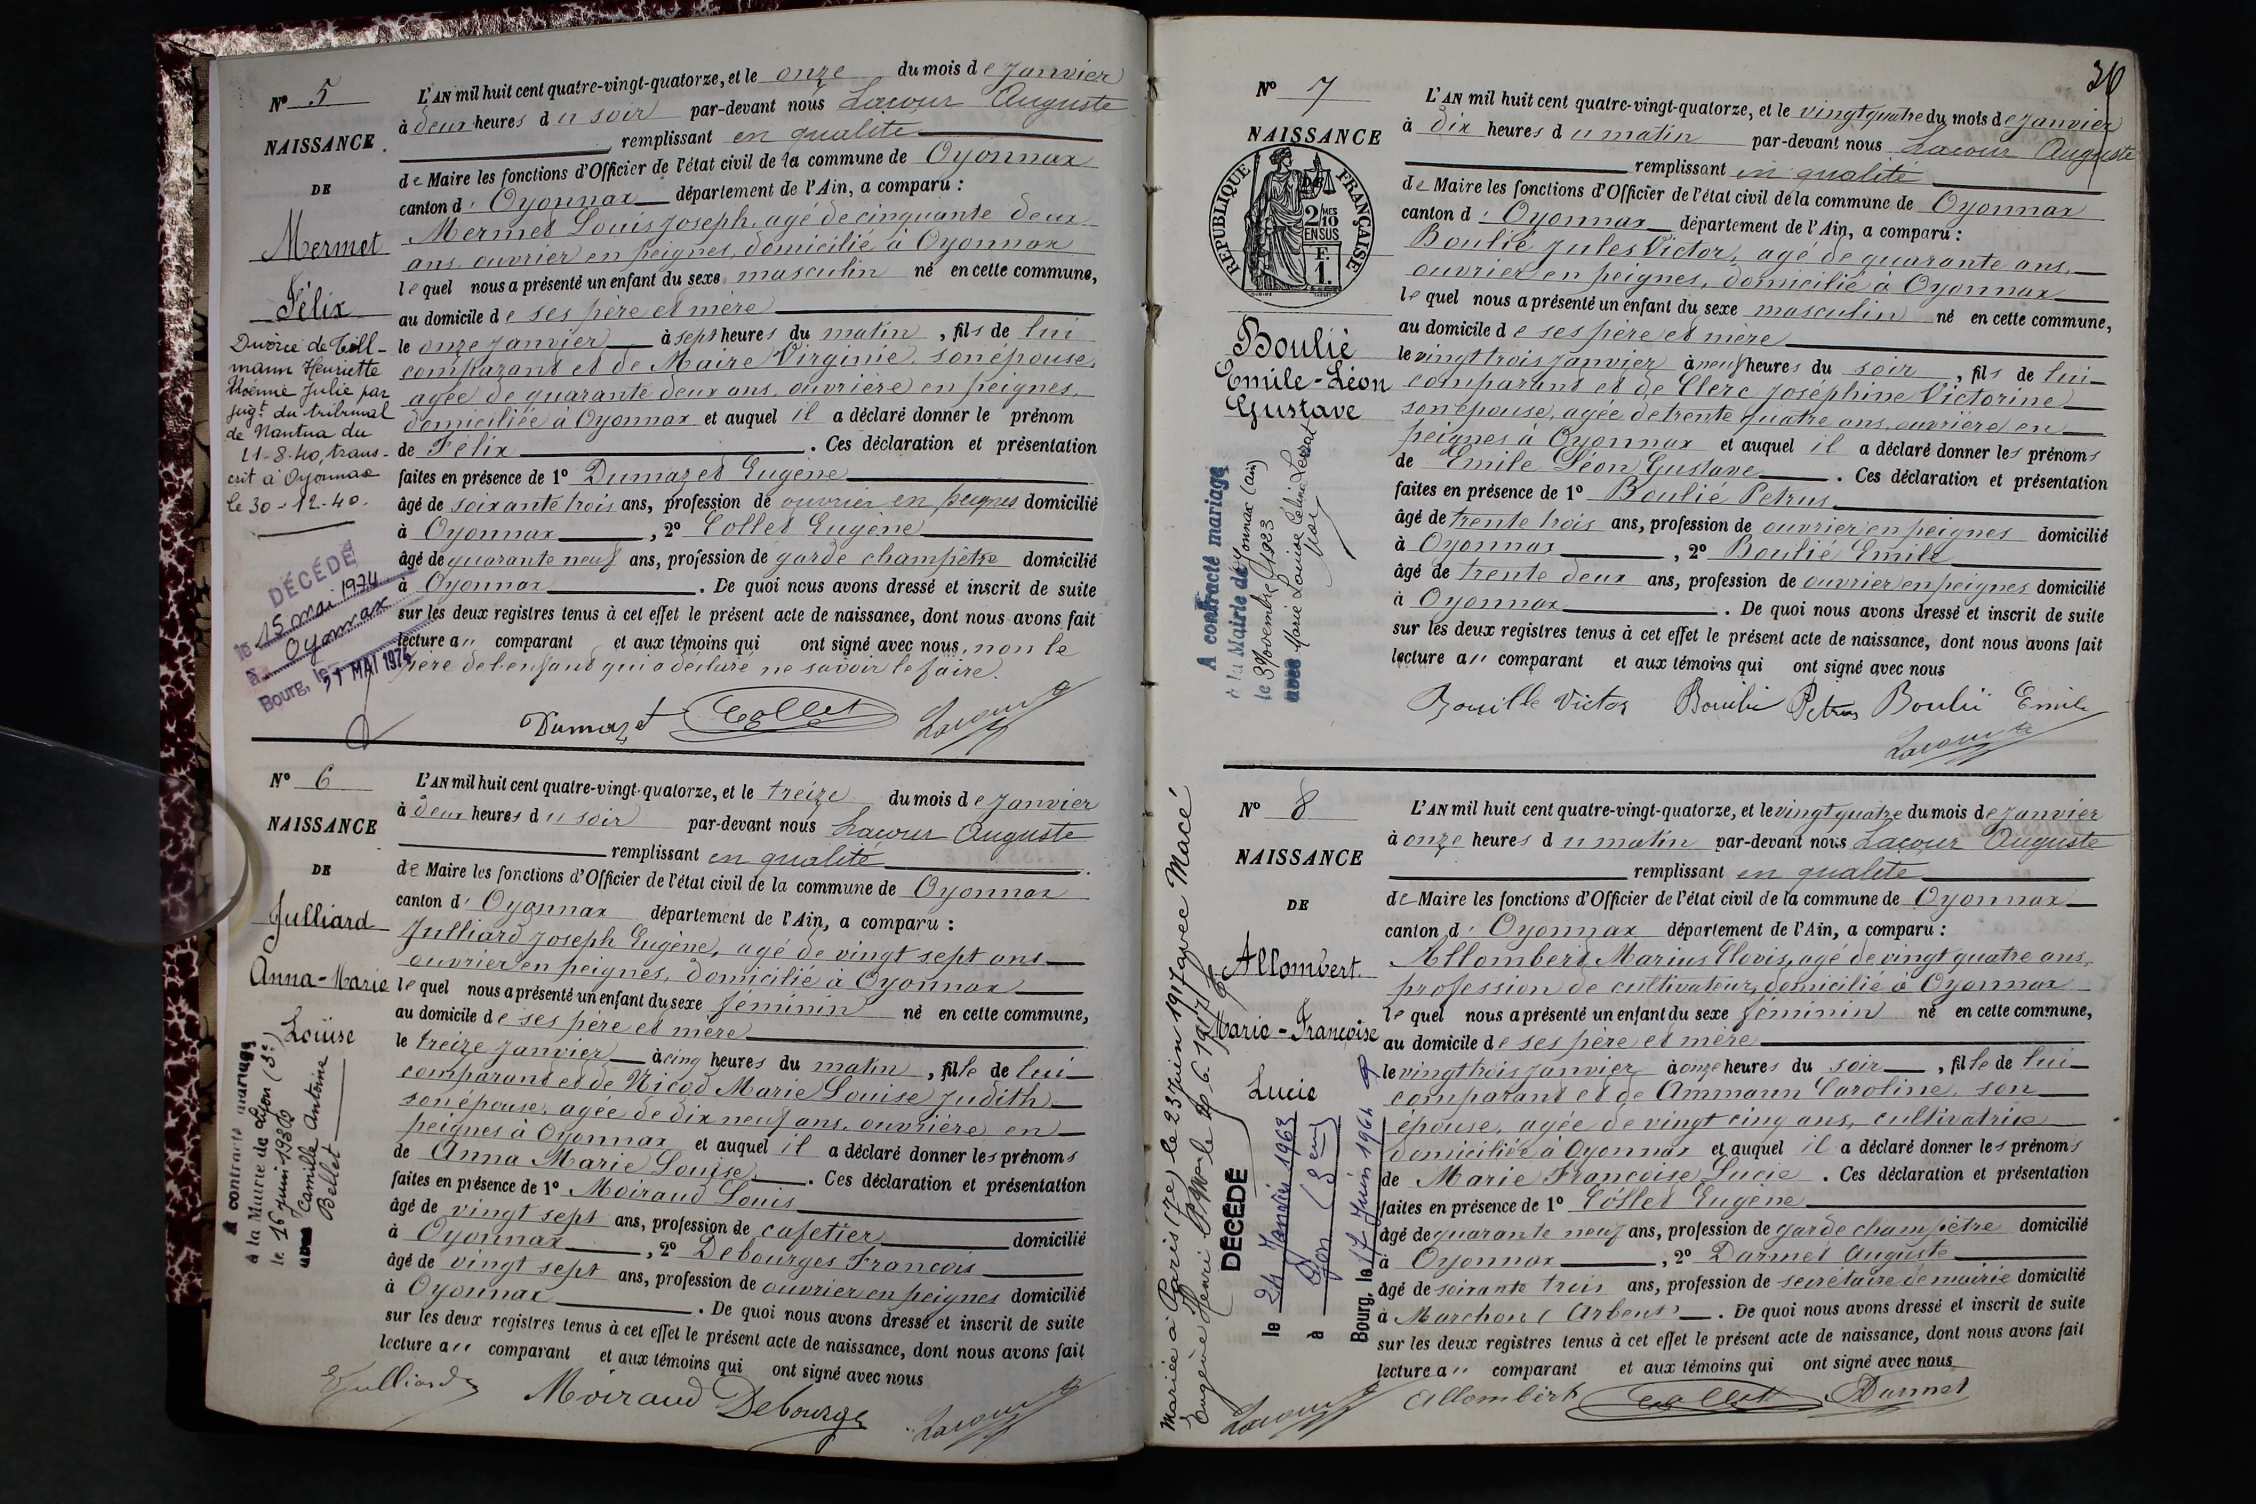 N° 5
NAISSANCE
DE
Mermet
Félix
Divorcé de
mann Henriette
Julie par
jugt du tribunal
de Nantua du
11-8-40, trans-
crit à Oyonnax
le 30-12-40.
DÉCÉDÉ
le 15 mai 1974
à Oyonnax
Bourg, le 21 MAI 1974
L'AN mil huit cent quatre-vingt-quatorze, et le onze du mois de Janvier
à deux heures du soir par-devant nous Lacour Auguste
remplissant en qualité
de Maire les fonctions d'Officier de l'état civil de la commune de Oyonnax
canton d'Oyonnax département de l'Ain, a comparu :
Mermet Louis Joseph, agé de cinquante deux
ans, ouvrier en peignes, domicilié à Oyonnax
lequel nous a présenté un enfant du sexe masculin né en cette commune,
au domicile de ses père et mère
le onze janvier à sept heures du matin, fils de lui
comparant et de Maire Virginie, son épouse,
agée de quarante deux ans, ouvrière en peignes,
domiciliée à Oyonnax et auquel il a déclaré donner le prénom
de Félix. Ces déclaration et présentation
faites en présence de 1° Dumazet Eugène
âgé de soixante trois ans, profession de ouvrier en peignes domicilié
à Oyonnax, 2° Collet Eugène
âgé de quarante neuf ans, profession de garde champêtre domicilié
à Oyonnax. De quoi nous avons dressé et inscrit de suite
sur les deux registres tenus à cet effet le présent acte de naissance, dont nous avons fait
lecture au comparant et aux témoins qui ont signé avec nous, non le
père de l'enfant qui a déclaré ne savoir le faire.
Dumazet Collet Lacour
N° 6
NAISSANCE
DE
Julliard
Anna-Marie
Louise
A contracté mariage
à la Mairie de Lyon (3e)
le 16 juin 1930
avec Camille Antoine
Bellet
L'AN mil huit cent quatre-vingt-quatorze, et le treize du mois de Janvier
à deux heures du soir par-devant nous Lacour Auguste
remplissant en qualité
de Maire les fonctions d'Officier de l'état civil de la commune de Oyonnax
canton d'Oyonnax département de l'Ain, a comparu :
Julliard Joseph Eugène, agé de vingt sept ans
ouvrier en peignes, domicilié à Oyonnax
lequel nous a présenté un enfant du sexe féminin né en cette commune,
au domicile de ses père et mère
le treize janvier à cinq heures du matin, fille de lui
comparant et de Nicod Marie Louise Judith
son épouse, agée de dix neuf ans, ouvrière en
peignes à Oyonnax et auquel il a déclaré donner les prénoms
de Anna Marie Louise. Ces déclaration et présentation
faites en présence de 1° Moiraud Louis
âgé de vingt sept ans, profession de cafetier domicilié
à Oyonnax, 2° Debourges François
âgé de vingt sept ans, profession de ouvrier en peignes domicilié
à Oyonnax. De quoi nous avons dressé et inscrit de suite
sur les deux registres tenus à cet effet le présent acte de naissance, dont nous avons fait
lecture au comparant et aux témoins qui ont signé avec nous
Julliard Moiraud Debourge Lacour
N° 7
NAISSANCE
DE
RÉPUBLIQUE FRANÇAISE
2/10 EN SUS
1 F.
Boulié
Emile-Léon
Gustave
A contracté mariage
à la Mairie de Oyonnax (ain)
le 3 Novembre 1923
avec Marie Louise Célina Levrat
L'AN mil huit cent quatre-vingt-quatorze, et le vingt quatre du mois de Janvier
à dix heures du matin par-devant nous Lacour Auguste
remplissant en qualité
de Maire les fonctions d'Officier de l'état civil de la commune de Oyonnax
canton d'Oyonnax département de l'Ain, a comparu :
Boulié Jules Victor, agé de quarante ans,
ouvrier en peignes, domicilié à Oyonnax
lequel nous a présenté un enfant du sexe masculin né en cette commune,
au domicile de ses père et mère
le vingt trois janvier à neuf heures du soir, fils de lui
comparant et de Clerc Joséphine Victorine
son épouse, agée de trente quatre ans, ouvrière en
peignes à Oyonnax et auquel il a déclaré donner les prénoms
de Emile Léon Gustave. Ces déclaration et présentation
faites en présence de 1° Boulié Petrus
âgé de trente trois ans, profession de ouvrier en peignes domicilié
à Oyonnax, 2° Boulié Emile
âgé de trente deux ans, profession de ouvrier en peignes domicilié
à Oyonnax. De quoi nous avons dressé et inscrit de suite
sur les deux registres tenus à cet effet le présent acte de naissance, dont nous avons fait
lecture au comparant et aux témoins qui ont signé avec nous
Bouille Victor Boulié Petrus Boulié Emile
Lacour
N° 8
NAISSANCE
DE
Allombert
Marie-Françoise
Lucie
Mariée à Paris (7e) le 23 Juin 1917 avec Macé
Eugène Henri
DÉCÉDÉ
le 24 Janvier 1963
à Lyon (3eme)
Bourg, le 17 Juin 1964
L'AN mil huit cent quatre-vingt-quatorze, et le vingt quatre du mois de Janvier
à onze heures du matin par-devant nous Lacour Auguste
remplissant en qualité
de Maire les fonctions d'Officier de l'état civil de la commune de Oyonnax
canton d'Oyonnax département de l'Ain, a comparu :
Allombert Marius Clovis, agé de vingt quatre ans,
profession de cultivateur, domicilié à Oyonnax
lequel nous a présenté un enfant du sexe féminin né en cette commune,
au domicile de ses père et mère
le vingt trois janvier à onze heures du soir, fille de lui
comparant et de Ammann Caroline, son
épouse, agée de vingt cinq ans, cultivatrice
domiciliée à Oyonnax et auquel il a déclaré donner les prénoms
de Marie Françoise Lucie. Ces déclaration et présentation
faites en présence de 1° Collet Eugène
âgé de quarante neuf ans, profession de garde champêtre domicilié
à Oyonnax, 2° Darmet Auguste
âgé de soixante trois ans, profession de secrétaire de mairie domicilié
à Marchon (Arbent). De quoi nous avons dressé et inscrit de suite
sur les deux registres tenus à cet effet le présent acte de naissance, dont nous avons fait
lecture au comparant et aux témoins qui ont signé avec nous
Lacour Allombert Collet Darmet